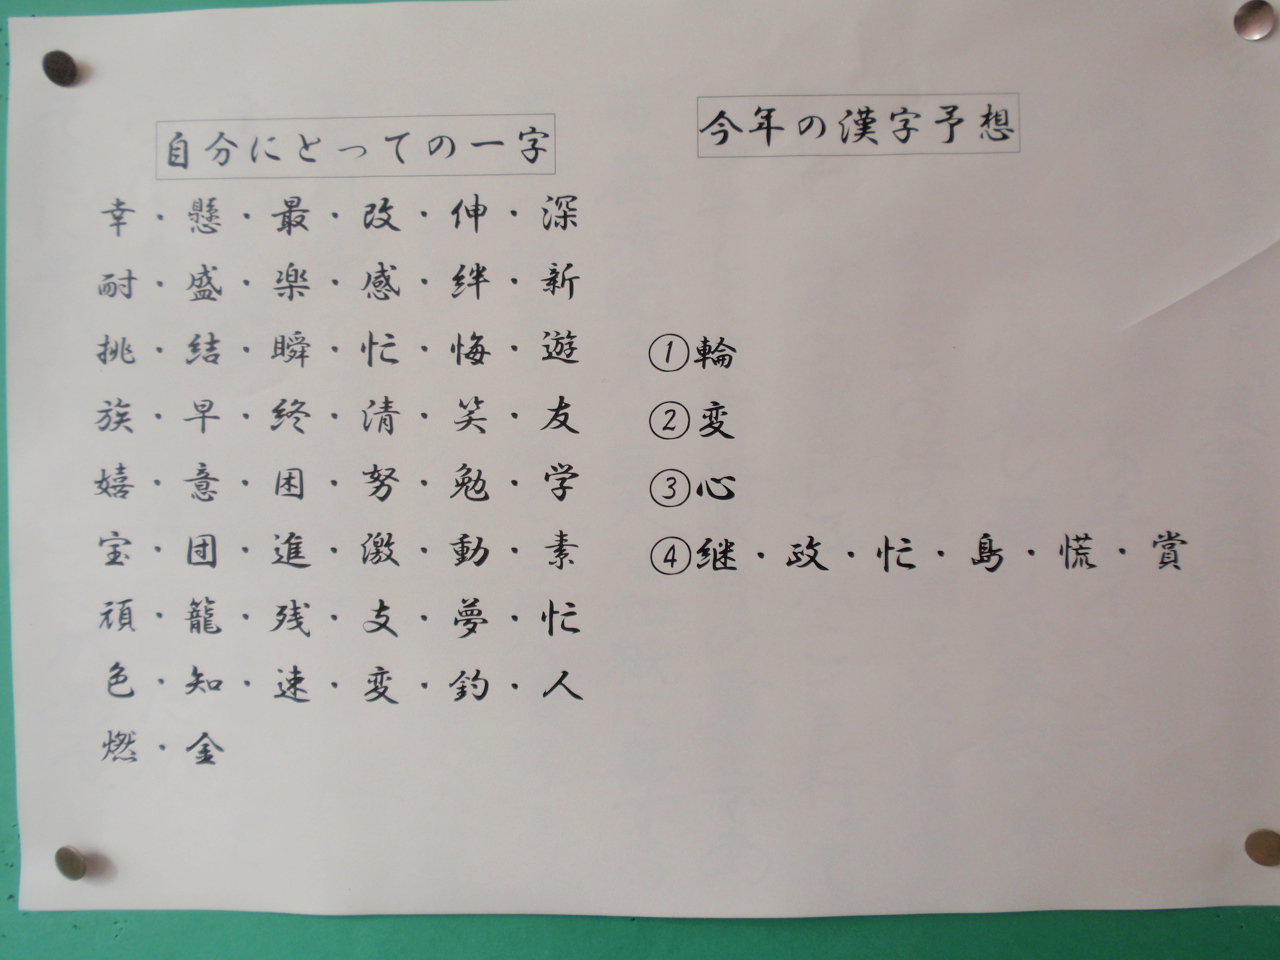 自分にとっての一字
幸・懸・最・改・伸・深
耐・盛・楽・感・絆・新
挑・結・瞬・忙・悔・遊
族・早・終・清・笑・友
嬉・意・困・努・勉・学
宝・団・進・激・動・素
頑・籠・残・支・夢・忙
色・知・速・変・釣・人
燃・金
今年の漢字予想
①輪
②変
③心
④継・政・忙・島・慌・賞